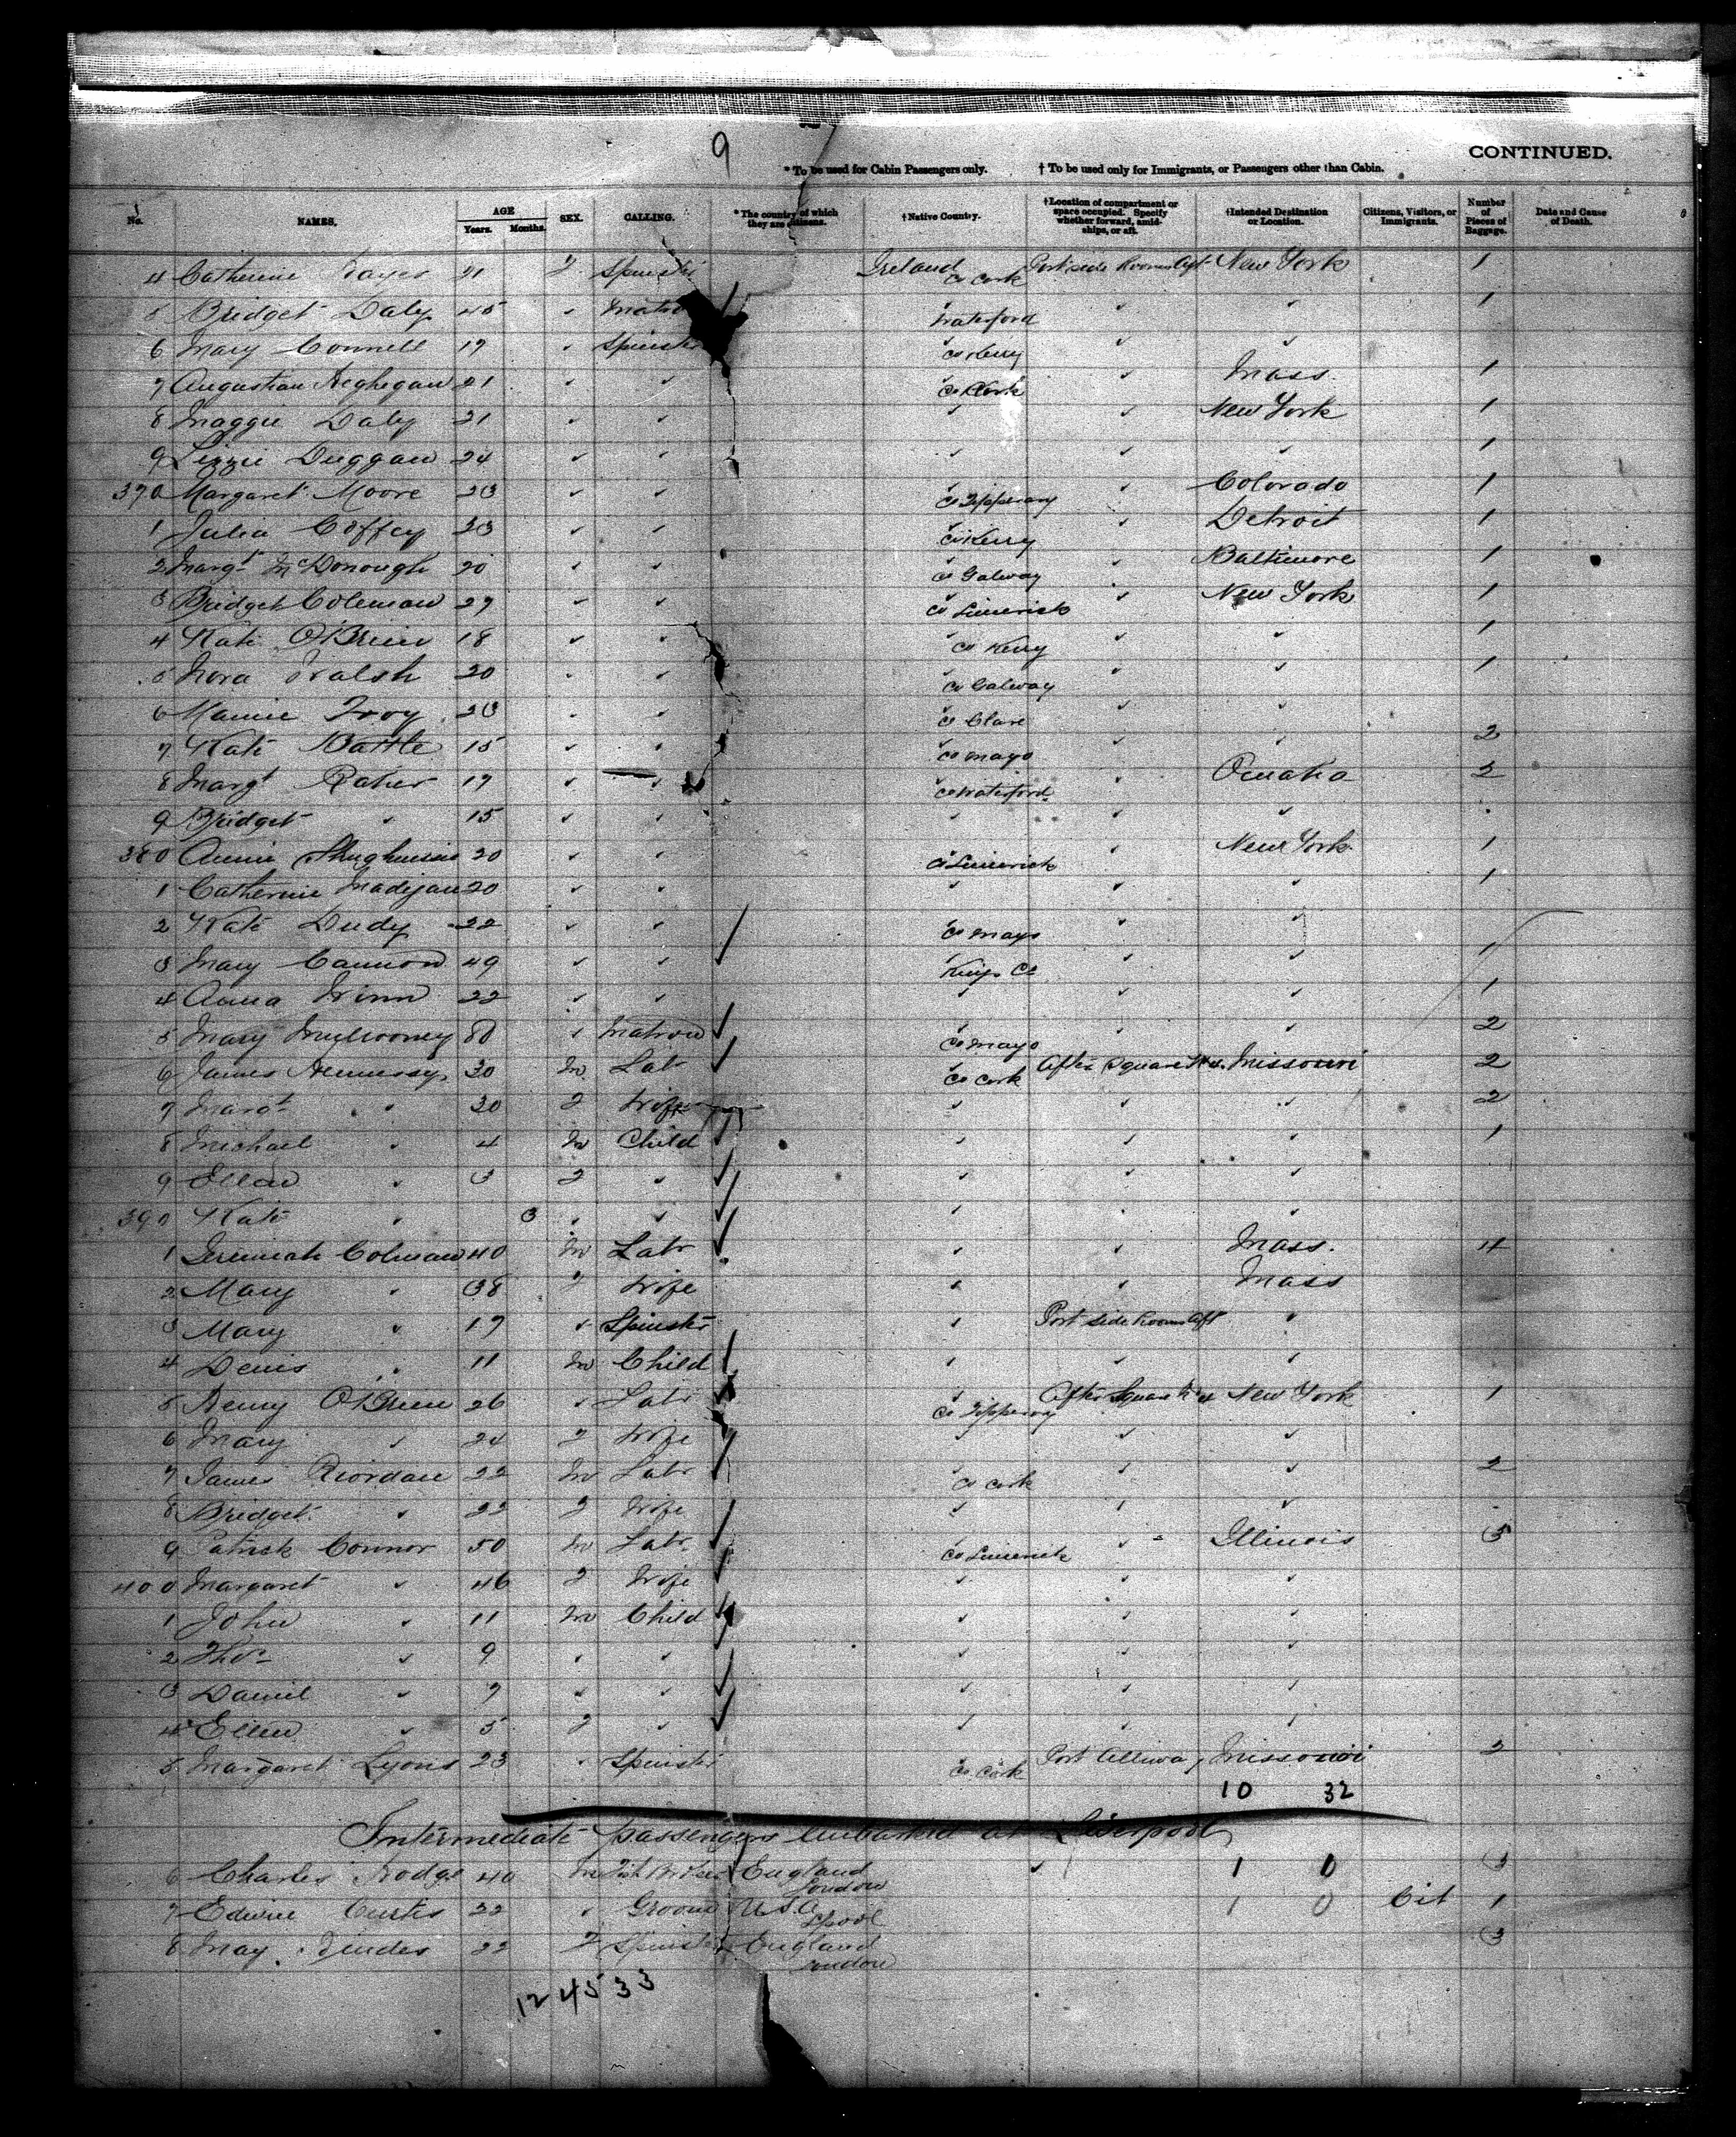 9
CONTINUED.
* To be used for Cabin Passengers only. † To be used only for Immigrants, or Passengers other than Cabin.
No. NAMES. AGE Years. Months. SEX. CALLING. * The country of which they are citizens. † Native Country. † Location of compartment or space occupied. Specify whether forward, amidships, or aft. † Intended Destination or Location. Citizens, Visitors, or Immigrants. Number of Pieces of Baggage. Date and Cause of Death.
4 Catherine 21 F Spinster Ireland Co Cork Port side Rooms Aft New York 1
5 Bridget Daly 45 " Matron " Waterford " " 1
6 Mary Connell 19 " Spinster " Co Kerry " "
7 Augustian 21 " " " Co Cork " Mass. 1
8 Maggie Daly 21 " " " " New York 1
9 Lizzie Duggan 24 " " " " " 1
370 Margaret Moore 23 " " " Co Tipperary " Colorado 1
1 Julia Coffey 23 " " " Co Kerry " Detroit 1
2 Margt McDonough 20 " " " Co Galway " Baltimore 1
3 Bridget Coleman 27 " " " Co Limerick " New York 1
4 Kate O'Brien 18 " " " Co Kerry " " 1
5 Nora Walsh 20 " " " Co Galway " " 1
6 Mamie Troy 23 " " " Co Clare " "
7 Kate Battle 15 " " " Co Mayo " " 2
8 Margt 17 " " " Co Waterford " Omaha 2
9 Bridget " 15 " " " " "
380 Annie 20 " " " Co Limerick " New York 1
1 Catherine Madigan 20 " " " " " 1
2 Kate Dudy 22 " " " Co Mayo " "
3 Mary Cannon 49 " " " Kings Co " " 1
4 Anna Winn 22 " " " " " 1
5 Mary Mulrooney " Matron " Co Mayo " " 2
6 James Hennessy 30 M Labr " Co Cork After Square Missouri 2
7 Margt " 30 F Wife " " " 2
8 Michael " 4 M Child " " " 1
9 Ellen " 3 F " " " "
390 Kate " 3 " " " " "
1 Jeremiah Colman 40 M Labr " " Mass. 4
2 Mary " 38 F Wife " " Mass
3 Mary " 19 " Spinster " Port side Rooms Aft "
4 Denis " 11 M Child " " "
5 Henry O'Brien 26 " Labr " Co Tipperary After Square New York 1
6 Mary " 24 F Wife " " "
7 James Riordan 22 M Labr " Co Cork " " 2
8 Bridget " 22 F Wife " " "
9 Patrick Connor 50 M Labr " Co Limerick " Illinois 5
400 Margaret " 46 F Wife " " "
1 John " 11 M Child " " "
2 Thos " 9 " " " " "
3 Daniel " 7 " " " " "
4 Ellen " 5 F " " " "
5 Margaret Lyons 23 " Spinster " Co Cork Port Missouri 2
10 32
Intermediate passengers embarked at Liverpool
6 Charles 40 M England London 1 0 3
7 Edwin Curtis 22 " Groom U.S.A. L'pool 1 0 Cit 1
8 May 22 F Spinster England London 3
124533